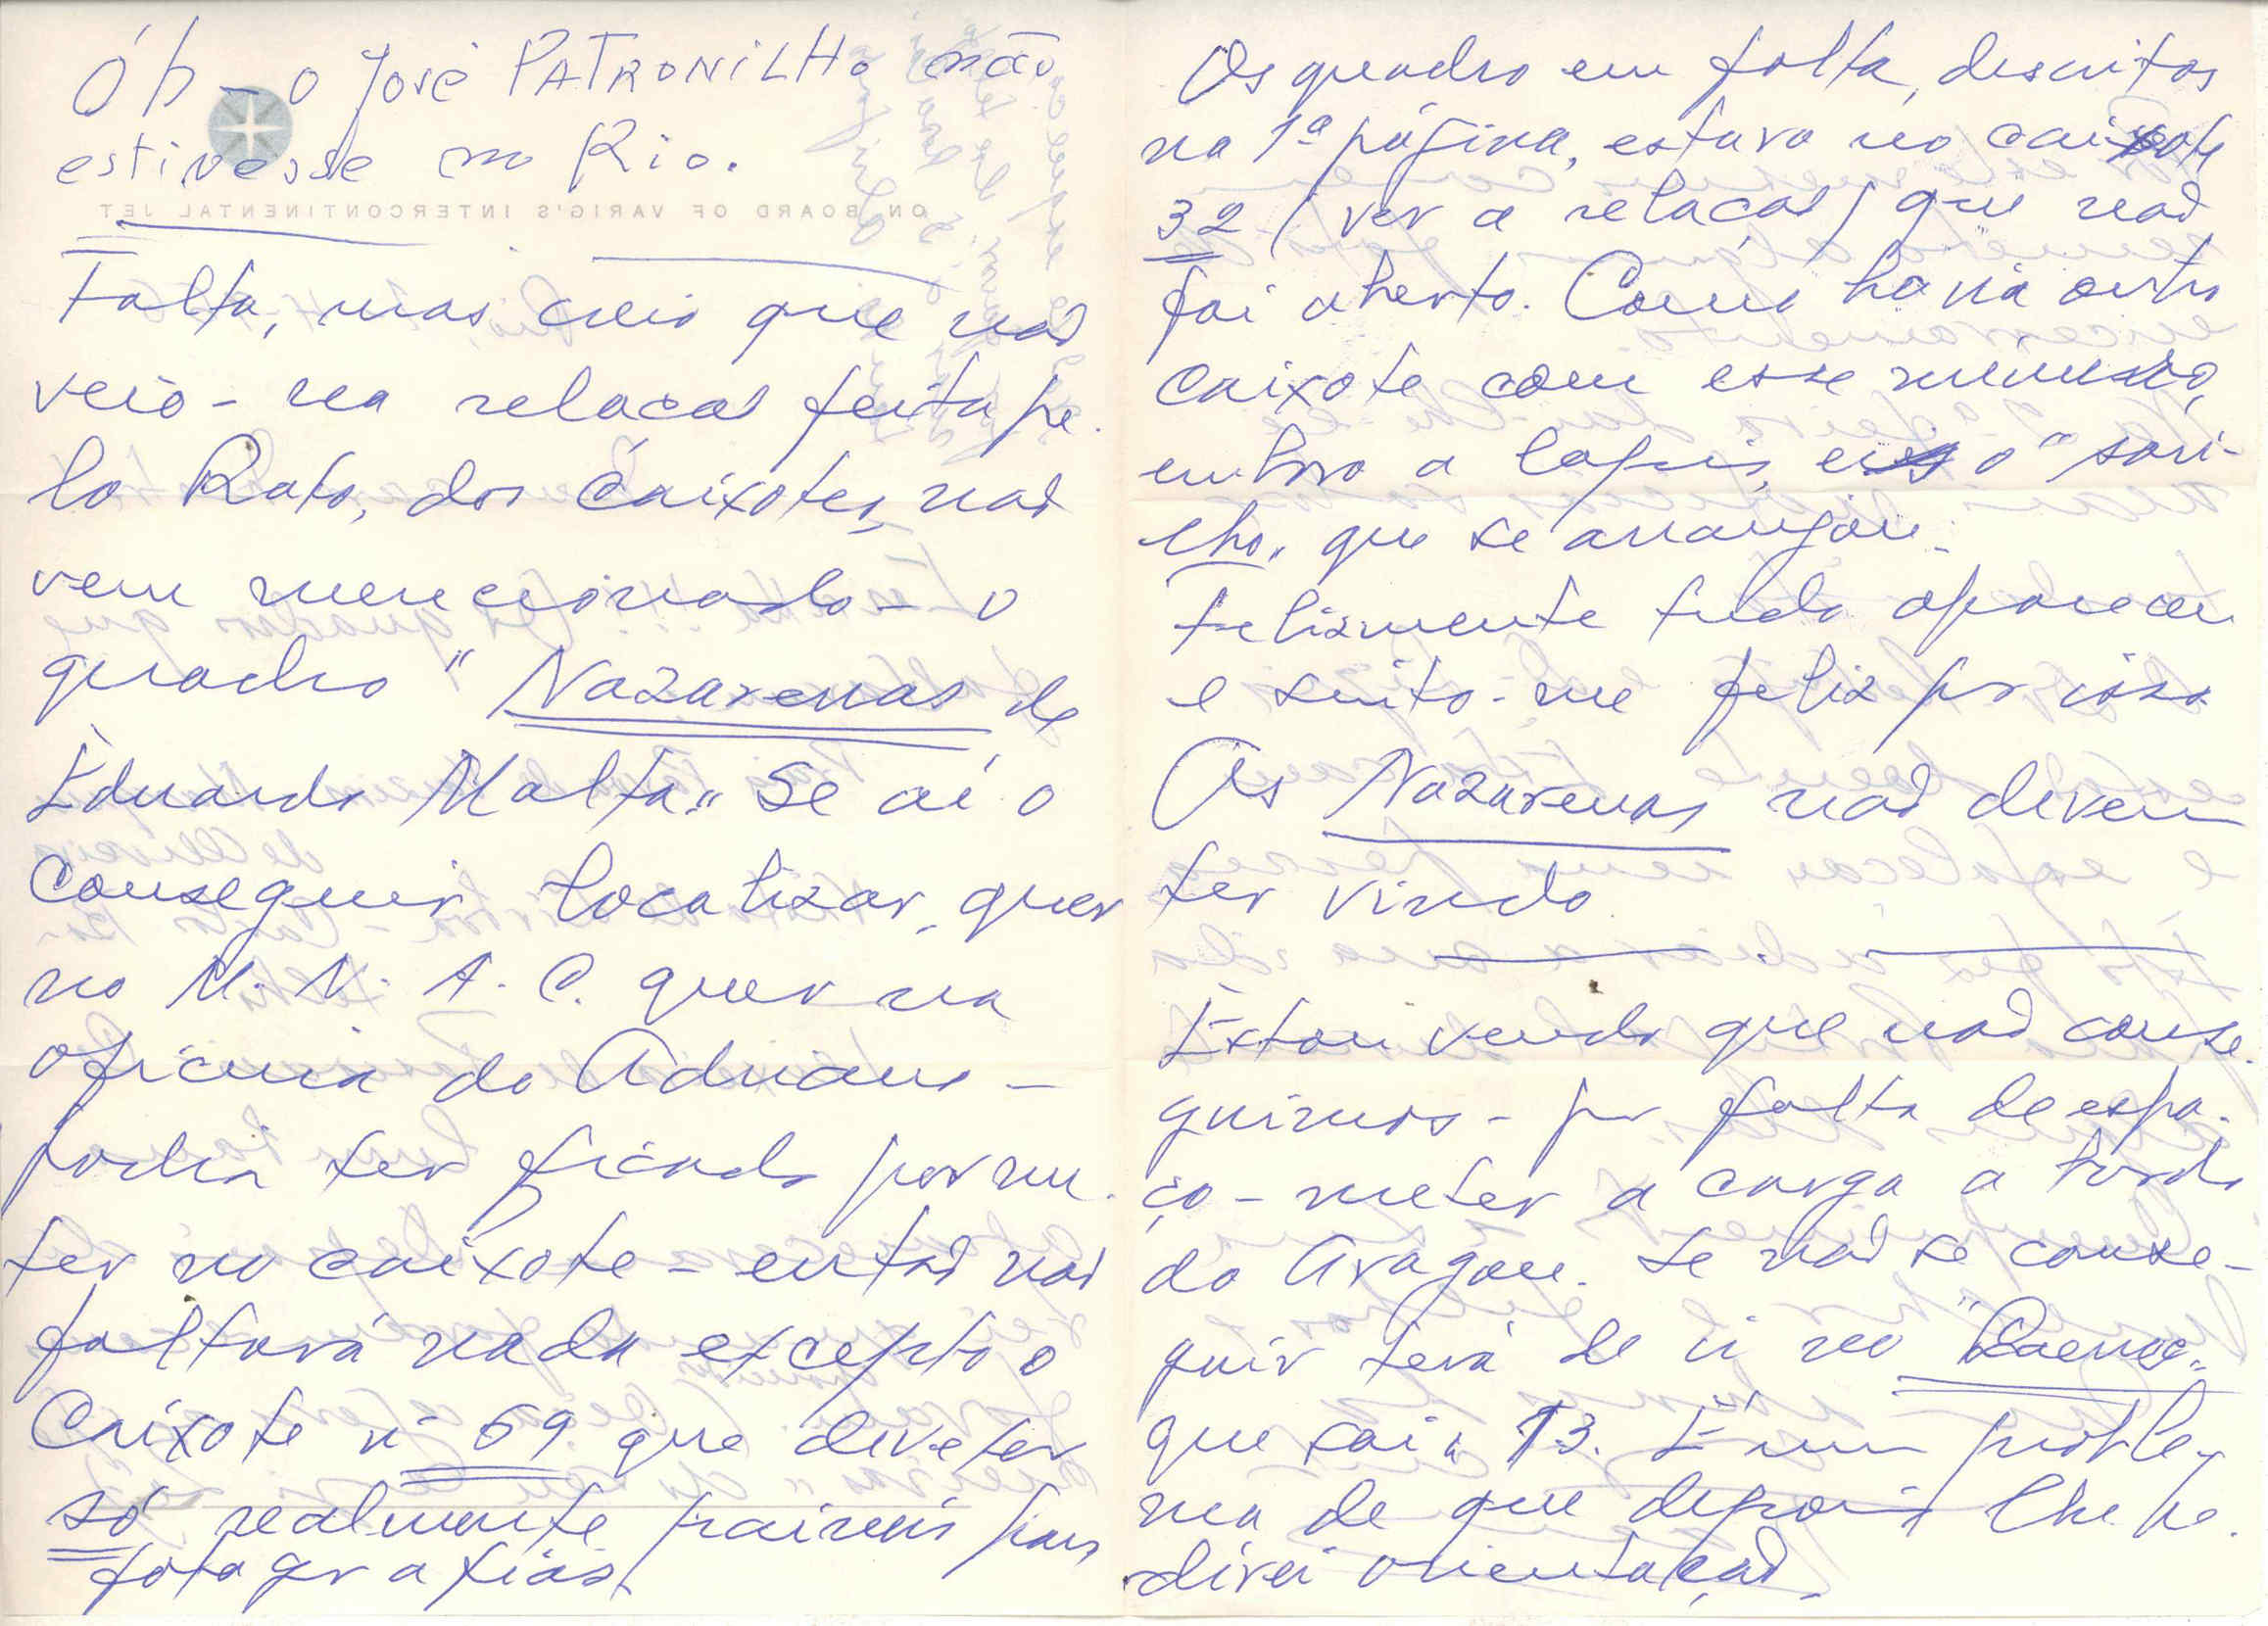 Ób – o José PATRONILHO não
estivesse no Rio.
Falta, mas creio que não
veio – na relação feita pe-
lo Rato, dos caixotes, não
vem mencionado – o
quadro " Nazarenas de
Eduardo Malta" Se aí o
conseguir localizar, quer
no M. N. A. C. quer na
oficina do Adriano –
podia ter ficado por me-
ter no caixote – então não
faltará nada excepto o
Caixote nº 69 que deve ter
só realmente paineis para
fotografias.
Os quadro em falta, descritos
na 1ª página, estava no caixote
32 (ver a relação) que não
foi aberto. Como havia outro
caixote com esse número,
embora a lapis, eis o " sari-
lho" que se arranjou.
Felizmente tudo apareceu
e sinto-me feliz por isso
As Nazarenas não devem
ter vindo
Estou vendo que não conse-
guimos – por falta de espa-
ço – meter a carga a bordo
do Aragon. Se não se conse-
guir terá de ir no
que sai a 13. É um proble-
ma de que depois lhe pe-
direi orientação.
ON BOARD OF VARIG'S INTERCONTINENTAL JET